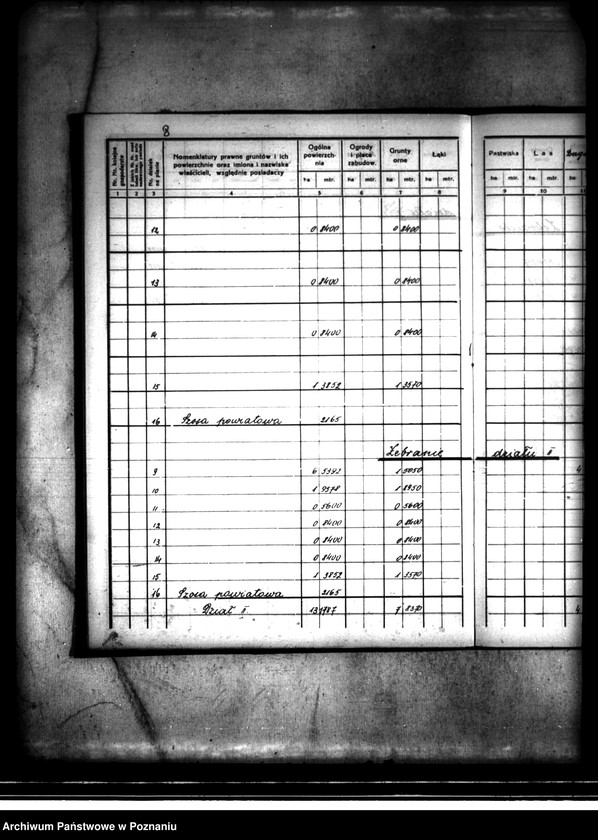 8
Nr. Nr. kolejne gospodarstw
Nr. działek na planie
Nomenklatury prawne gruntów i ich powierzchnie oraz imiona i nazwiska właścicieli, względnie posiadaczy
Ogólna powierzchnia
Ogrody i place zabudow.
Grunty orne
Łąki
Pastwiska
Las
ha mtr. ha mtr. ha mtr. ha mtr. ha mtr. ha mtr. ha
1 2 3 4 5 6 7 8 9 10 11
12 0 8400 0 8400
13 0 8400 0 8400
14 0 8400 0 8400
15 1 3852 1 3570
16 Szosa powiatowa 2165
Zebranie działu I
9 6 5392 1 5050 4
10 1 9578 1 8950
11 0 5600 0 5600
12 0 8400 0 8400
13 0 8400 0 8400
14 0 8400 0 8400
15 1 3852 1 3570
16 Szosa powiatowa 2165
Dział I 13 1787 7 8370 4
Archiwum Państwowe w Poznaniu